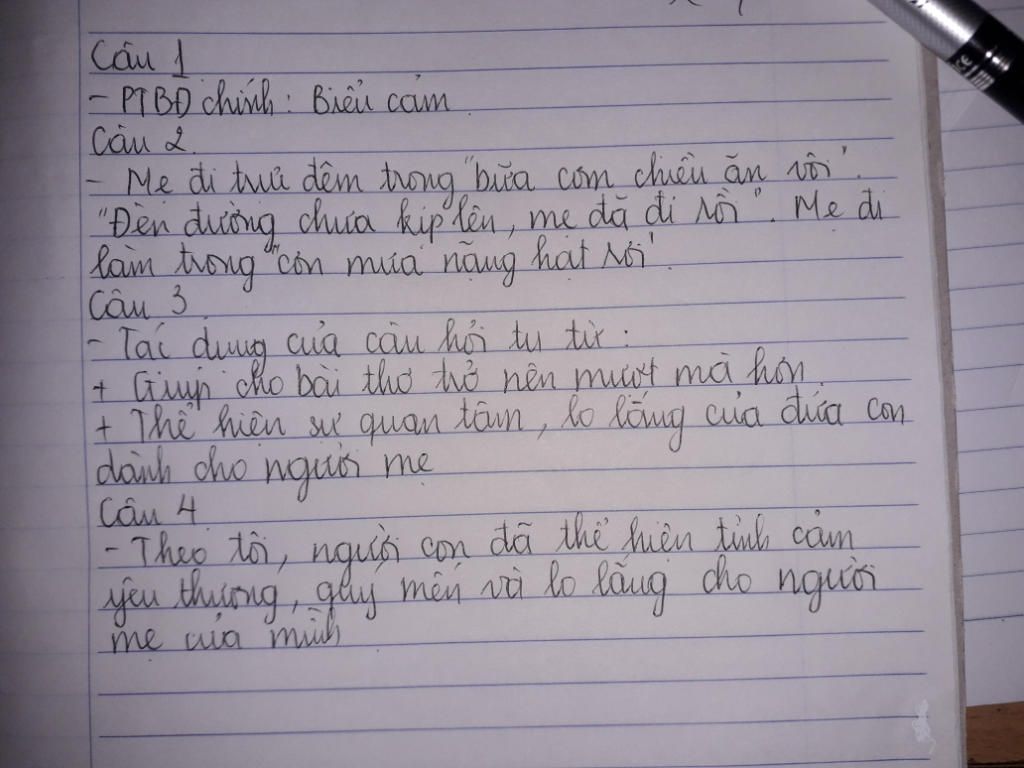 Câu 1
- PTBĐ chính: Biểu cảm
Câu 2.
- Mẹ đi trực đêm trong "bữa cơm chiều ăn vội".
"Đèn đường chưa kịp lên, mẹ đã đi rồi". Mẹ đi
làm trong "cơn mưa nặng hạt rơi".
Câu 3
- Tác dụng của câu hỏi tu từ:
+ Giúp cho bài thơ trở nên mượt mà hơn
+ Thể hiện sự quan tâm, lo lắng của đứa con
dành cho người mẹ
Câu 4
- Theo tôi, người con đã thể hiện tình cảm
yêu thương, quý mến và lo lắng cho người
mẹ của mình